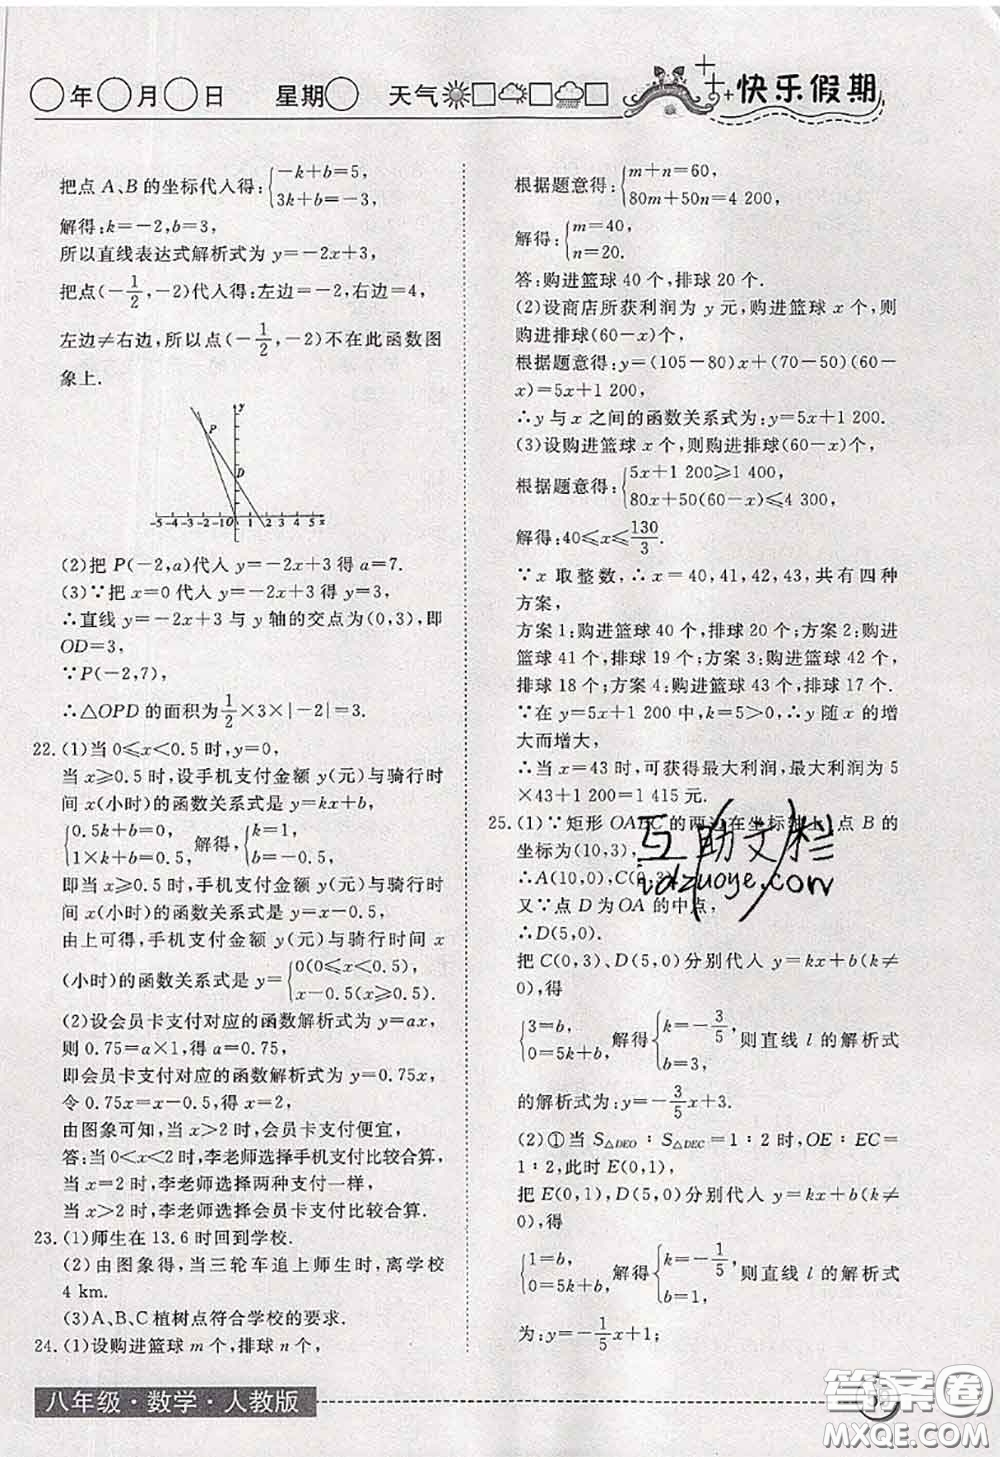 年 月 日 星期 天气 快乐假期
把点 A、B 的坐标代入得:{-k+b=5,
3k+b=-3,
解得:k=-2,b=3,
所以直线表达式解析式为 y=-2x+3,
把点(-1/2,-2)代入得:左边=-2,右边=4,
左边≠右边,所以点(-1/2,-2)不在此函数图
象上.
y
P
D
-5 -4 -3 -2 -1 O 1 2 3 4 5 x
(2)把 P(-2,a)代入 y=-2x+3 得 a=7.
(3)∵把 x=0 代入 y=-2x+3 得 y=3,
∴直线 y=-2x+3 与 y 轴的交点为(0,3),即
OD=3,
∵P(-2,7),
∴△OPD 的面积为1/2×3×|-2|=3.
22.(1)当 0≤x<0.5 时,y=0,
当 x≥0.5 时,设手机支付金额 y(元)与骑行时
间 x(小时)的函数关系式是 y=kx+b,
{0.5k+b=0, 解得,{k=1,
1×k+b=0.5, b=-0.5,
即当 x≥0.5 时,手机支付金额 y(元)与骑行时
间 x(小时)的函数关系式是 y=x-0.5,
由上可得,手机支付金额 y(元)与骑行时间 x
(小时)的函数关系式是 y={0(0≤x<0.5)
x-0.5(x≥0.5).
(2)设会员卡支付对应的函数解析式为 y=ax,
则 0.75=a×1,得 a=0.75,
即会员卡支付对应的函数解析式为 y=0.75x,
令 0.75x=x-0.5,得 x=2,
由图象可知,当 x>2 时,会员卡支付便宜,
答:当 0<x<2 时,李老师选择手机支付比较合算,
当 x=2 时,李老师选择两种支付一样,
当 x>2 时,李老师选择会员卡支付比较合算.
23.(1)师生在 13.6 时回到学校.
(2)由图象得,当三轮车追上师生时,离学校
4 km.
(3)A、B、C 植树点符合学校的要求.
24.(1)设购进篮球 m 个,排球 n 个,
根据题意得:{m+n=60,
80m+50n=4 200,
解得:{m=40,
n=20.
答:购进篮球 40 个,排球 20 个.
(2)设商店所获利润为 y 元,购进篮球 x 个,则
购进排球(60-x)个,
根据题意得:y=(105-80)x+(70-50)(60-
x)=5x+1 200,
∴y 与 x 之间的函数关系式为:y=5x+1 200.
(3)设购进篮球 x 个,则购进排球(60-x)个,
根据题意得:{5x+1 200≥1 400,
80x+50(60-x)≤4 300,
解得:40≤x≤130/3.
∵x 取整数,∴x=40,41,42,43,共有四种
方案,
方案 1:购进篮球 40 个,排球 20 个;方案 2:购进
篮球 41 个,排球 19 个;方案 3:购进篮球 42 个,
排球 18 个;方案 4:购进篮球 43 个,排球 17 个.
∵在 y=5x+1 200 中,k=5>0,∴y 随 x 的增
大而增大,
∴当 x=43 时,可获得最大利润,最大利润为 5
×43+1 200=1 415 元.
25.(1)∵矩形 OABC 的两边在坐标轴上,点 B 的
坐标为(10,3),
∴A(10,0),C(0,3),
又∵点 D 为 OA 的中点,
∴D(5,0).
把 C(0,3)、D(5,0)分别代入 y=kx+b(k≠
0),得
{3=b, 解得{k=-3/5, 则直线 l 的解析式
0=5k+b, b=3,
的解析式为:y=-3/5x+3.
(2)①当 S△DEO∶S△DEC=1∶2 时,OE∶EC=
1∶2,此时 E(0,1),
把 E(0,1)、D(5,0)分别代入 y=kx+b(k≠
0),得
{1=b, 解得{k=-1/5, 则直线 l 的解析式
0=5k+b, b=1,
为:y=-1/5x+1;
互助文栏
idzuoye.com
八年级·数学·人教版
答案卷
MXQE.COM